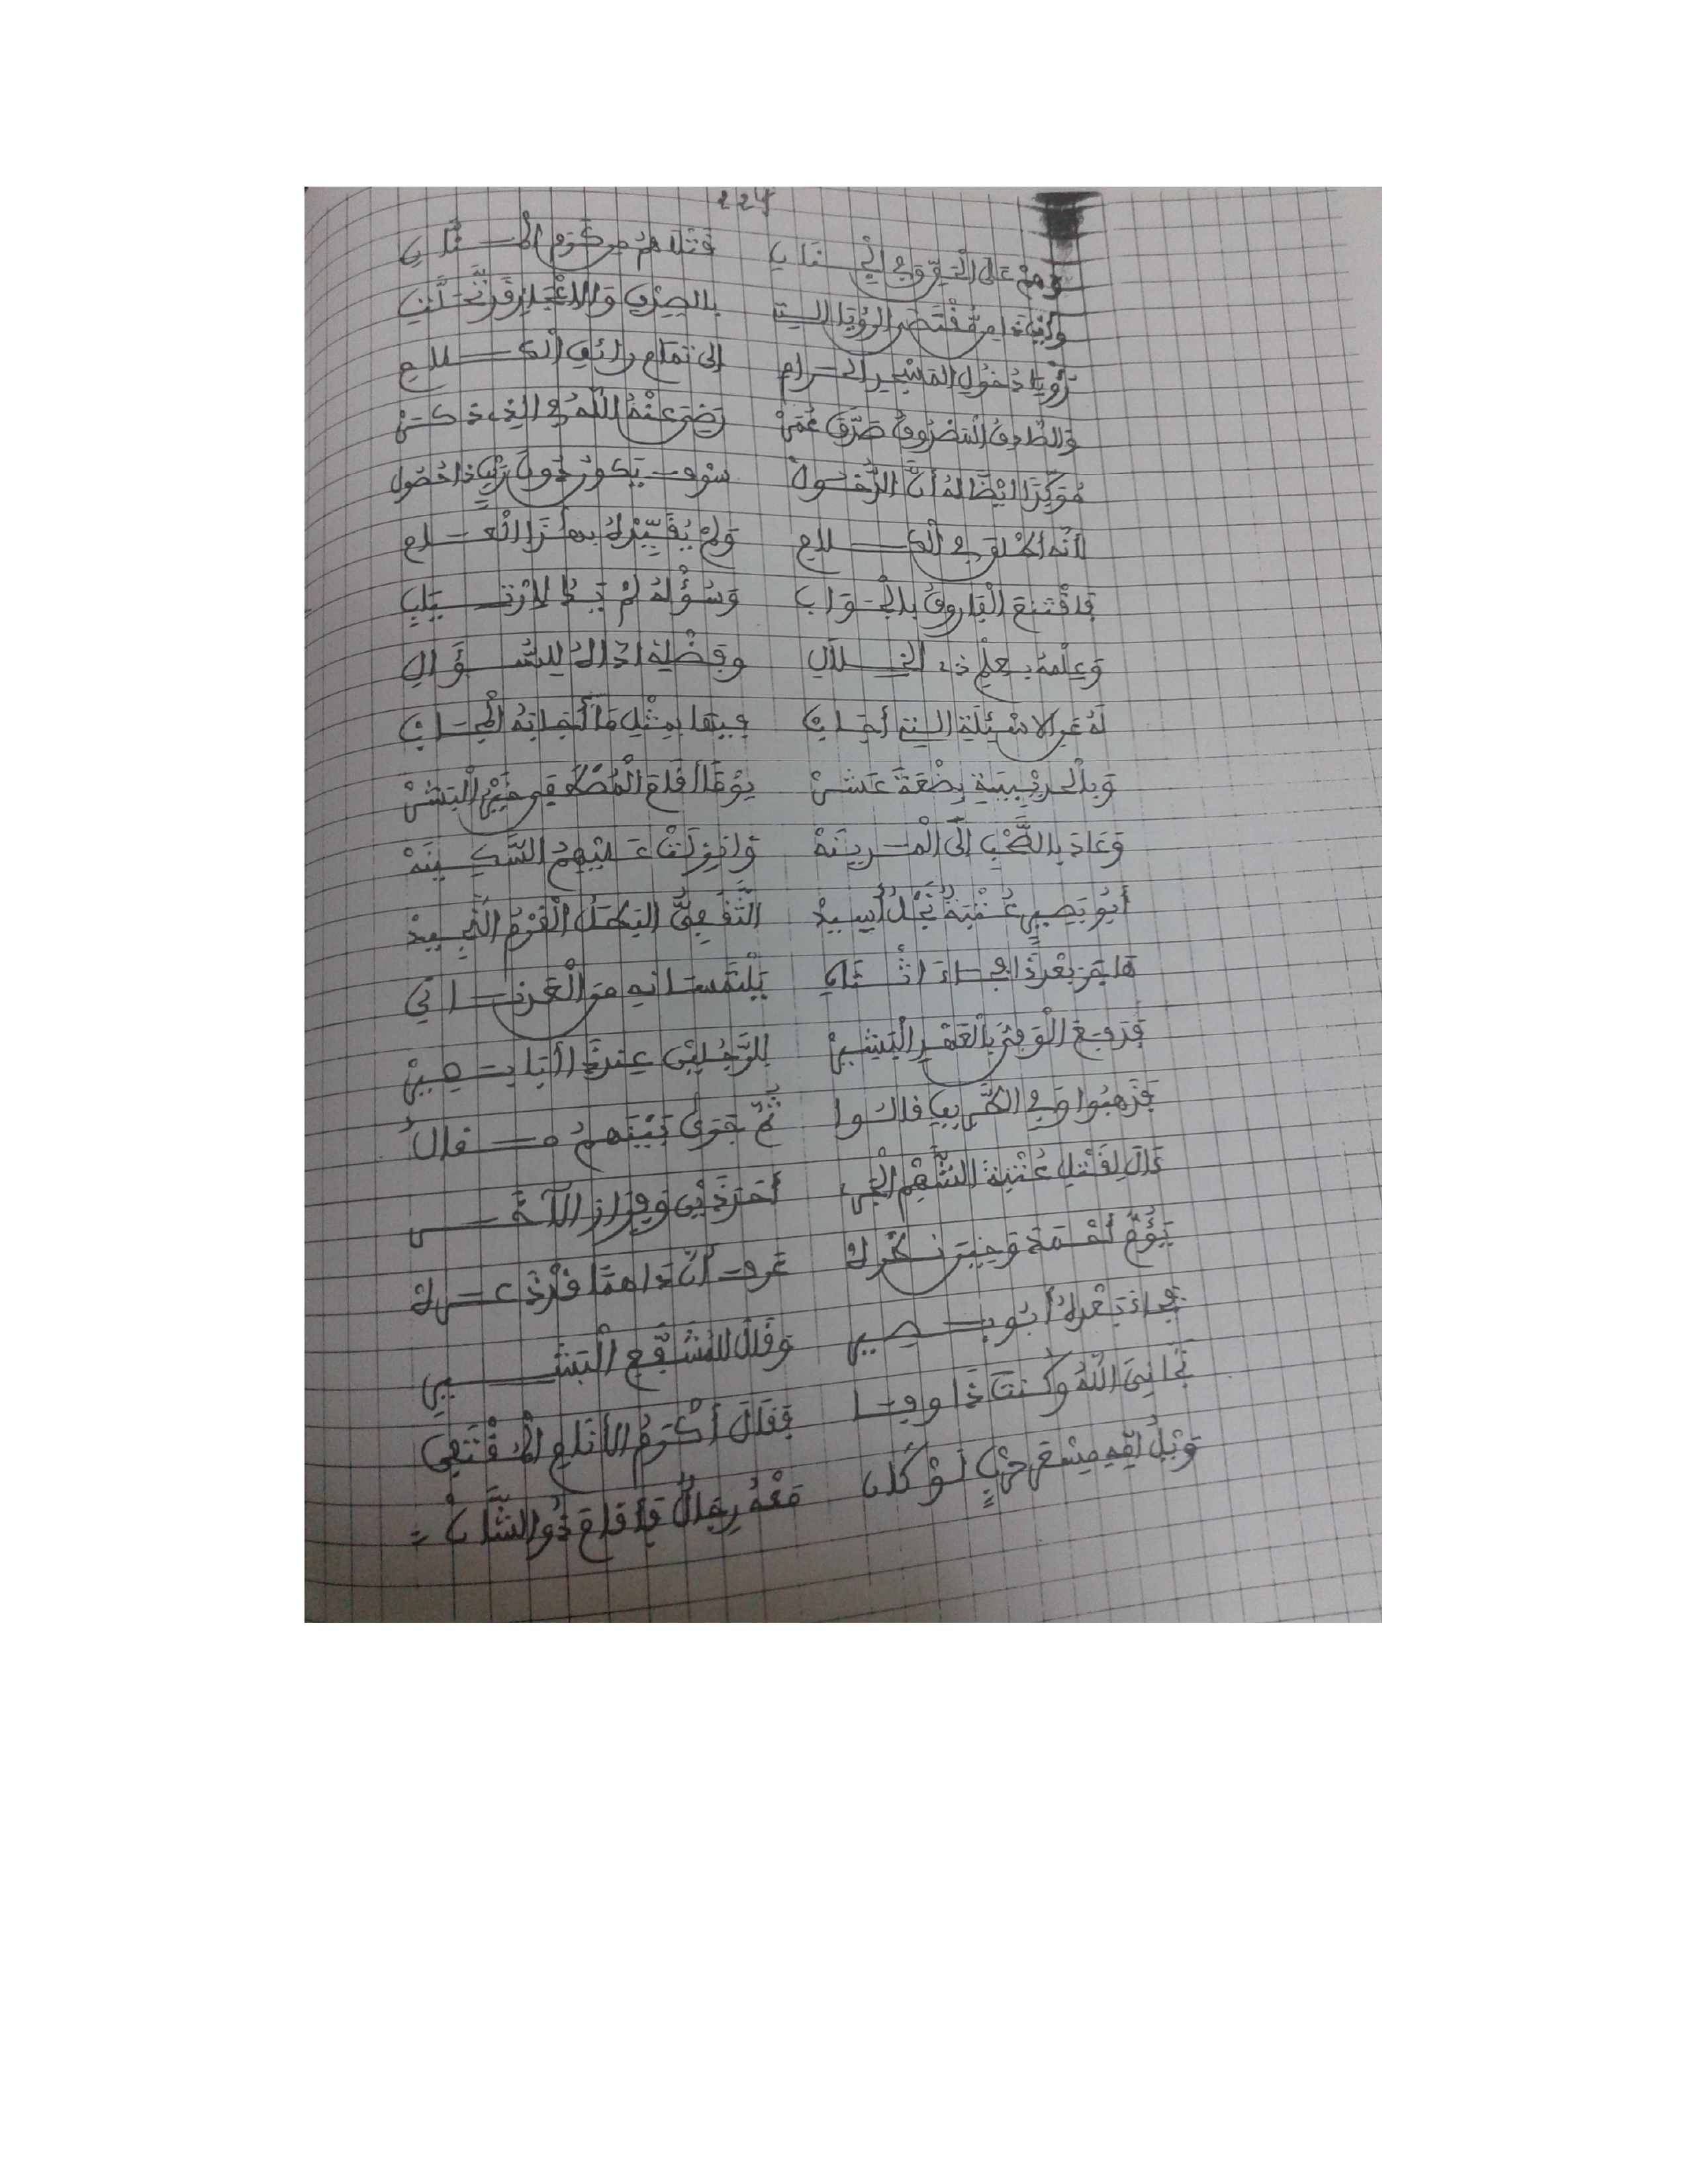 224
وهم على التفوق في الجناب قتلاهم من كرم المثاب
وأين ذا من مقتضى الرؤيا التي بالصدق والإعجاز قد تجلت
رؤيا دخول المسجد الحرام إلى تمام رائق الكلام
والصادق المصدوق صدق عمر رضي عنه الله في الذي ذكر
مؤكدا أيضا له أن الدخول سوف يكون دون ريب ذا حصول
لأنه أطلق في الكلام ولم يقيده بهذا العام
فاقتنع الفاروق بالجواب وسؤله لم يبد لارتياب
وعلمه بعلم ذي الجلال وفضله اذاك للسؤال
له عن الاسئلة التي أجاب عنها بمثل ما أجابه الجناب
وبالحديبية بضعة عشر يوما أقام المصطفى خير البشر
وعاد بالصحب إلى المدينه وانزلت عليهم السكينه
أبو بصير عتبة نجل أسيد الثقفي البطل القرم النجيد
هاجر بعد ذا وجاء اثنان يلتمسانه من العدناني
فدفع الوفي بالعهد البشير للرجلين عند ذا أبا بصير
فذهبوا وفي الطريق قالوا ثم جرى بينهم مقال
ءال لقتل عتبة الشهم الجري أحد ذين وفرار الآخر
يؤم أحمدا وحين نظرك عرف أن ذا هما قد ذعرك
فجاء بعدك أبو بصير وقال للمشفع البشير
نجاني الله وكنت ذا وفا فقال أكرم الأنام المقتفى
ويل امه مسعر حرب لو كان معه رجال فأقام ذو الشان